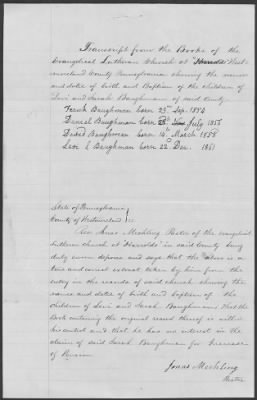 Transcript from the Books of the
Evangelical Lutheran Church at "Harrolds" West-
moreland County Pennsylvania shewing the names
and dates of birth and Baptism of the children of
Levi and Sarah Baughman of said County.
Baughman born 25th Sep. 1854
Daniel Baughman born July 1855
David Baughman born March 1858
Levi Baughman born 22 Dec. 1861
State of Pennsylvania
County of Westmoreland
Rev Jonas Mechling Pastor of the evangelical
lutheran church at "Harrolds" in said County being
duly sworn deposes and says that the above is a
true and correct extract taken by him from the
entry in the records of said church shewing the
names and dates of birth and baptism of the
children of Levi and Sarah Baughman, that the
book containing the original record thereof is within
his control and that he has no interest in the
claim of said Sarah Baughman for Increase
of Pension
Jonas Mechling
Pastor